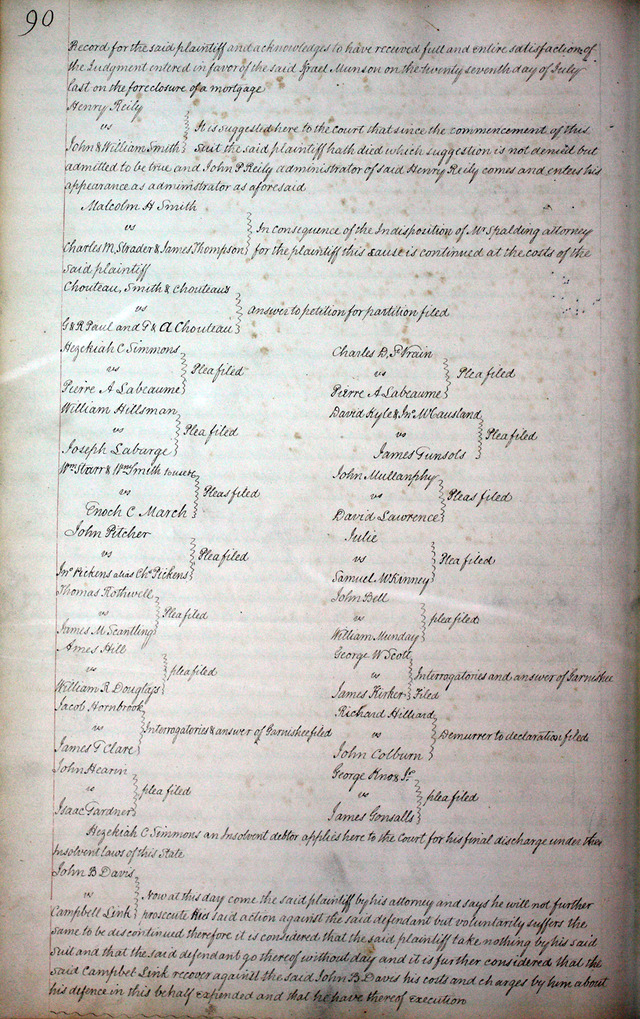 90
Record for the said plaintiff and acknowledges to have received full and entire satisfaction of
the Judgment entered in favor of the said Israel Munson on the twenty seventh day of July
last on the foreclosure of a mortgage
Henry Reily
vs
John & William Smith
It is suggested here to the court that since the commencement of this
suit the said plaintiff hath died which suggestion is not denied but
admitted to be true and John P Reily administrator of said Henry Reily comes and enters his
appearance as administrator as aforesaid
Malcolm H Smith
vs
Charles M. Strader & James Thompson
In consequence of the Indisposition of Mr Spalding attorney
for the plaintiff this cause is continued at the costs of the
said plaintiff
Chouteau, Smith & Chouteaus
vs
G & R Paul and T & A Chouteau
Answer to petition for partition filed
Hezekiah C Simmons
vs
Pierre A Labeaume
Plea filed
Charles D. St Vrain
vs
Pierre A Labeaume
Plea filed
William Hillsman
vs
Joseph Labarge
Plea filed
David Kyle & Jno McCausland
vs
James Gunsols
Plea filed
Wm Starr & Wm Smith to use
vs
Enoch C March
Pleas filed
John Mullanphy
vs
David Lawrence
Pleas filed
John Pitcher
vs
Jno Pickens alias Chs Pickens
Plea filed
Julie
vs
Samuel McKinney
Plea filed
Thomas Rothwell
vs
James M Scantling
Plea filed
John Bell
vs
William Munday
plea filed
Ames Hill
vs
William R Douglass
plea filed
George W Scott
vs
James Kerker
Interrogatories and answer of Garnishee
Filed
Jacob Hornbrook
vs
James T Clare
Interrogatories & answer of Garnishee filed
Richard Hilliard
vs
John Colburn
Demurrer to declaration filed
John Hearin
vs
Isaac Gardner
plea filed
George Knox Jr
vs
James Gonsalls
plea filed
Hezekiah C Simmons an Insolvent debtor applies here to the Court for his final discharge under the
Insolvent laws of this State
John B Davis
vs
Campbell Link
Now at this day come the said plaintiff by his attorney and says he will not further
prosecute his said action against the said defendant but voluntarily suffers the
same to be discontinued therefore it is considered that the said plaintiff take nothing by his said
suit and that the said defendant go thereof without day and it is further considered that the
said Campbel Link recover against the said John B Davis his costs and charges by him about
his defence in this behalf expended and that he have thereof execution